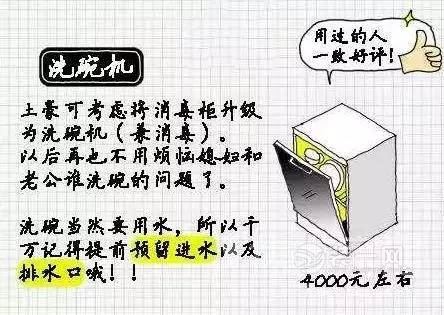 洗碗机
用过的人
一致好评！
土豪可考虑将消毒柜升级
为洗碗机（兼消毒）。
以后再也不用烦恼媳妇和
老公谁洗碗的问题了。
洗碗当然要用水，所以千
万记得提前预留进水以及
排水口哦！！
4000元左右